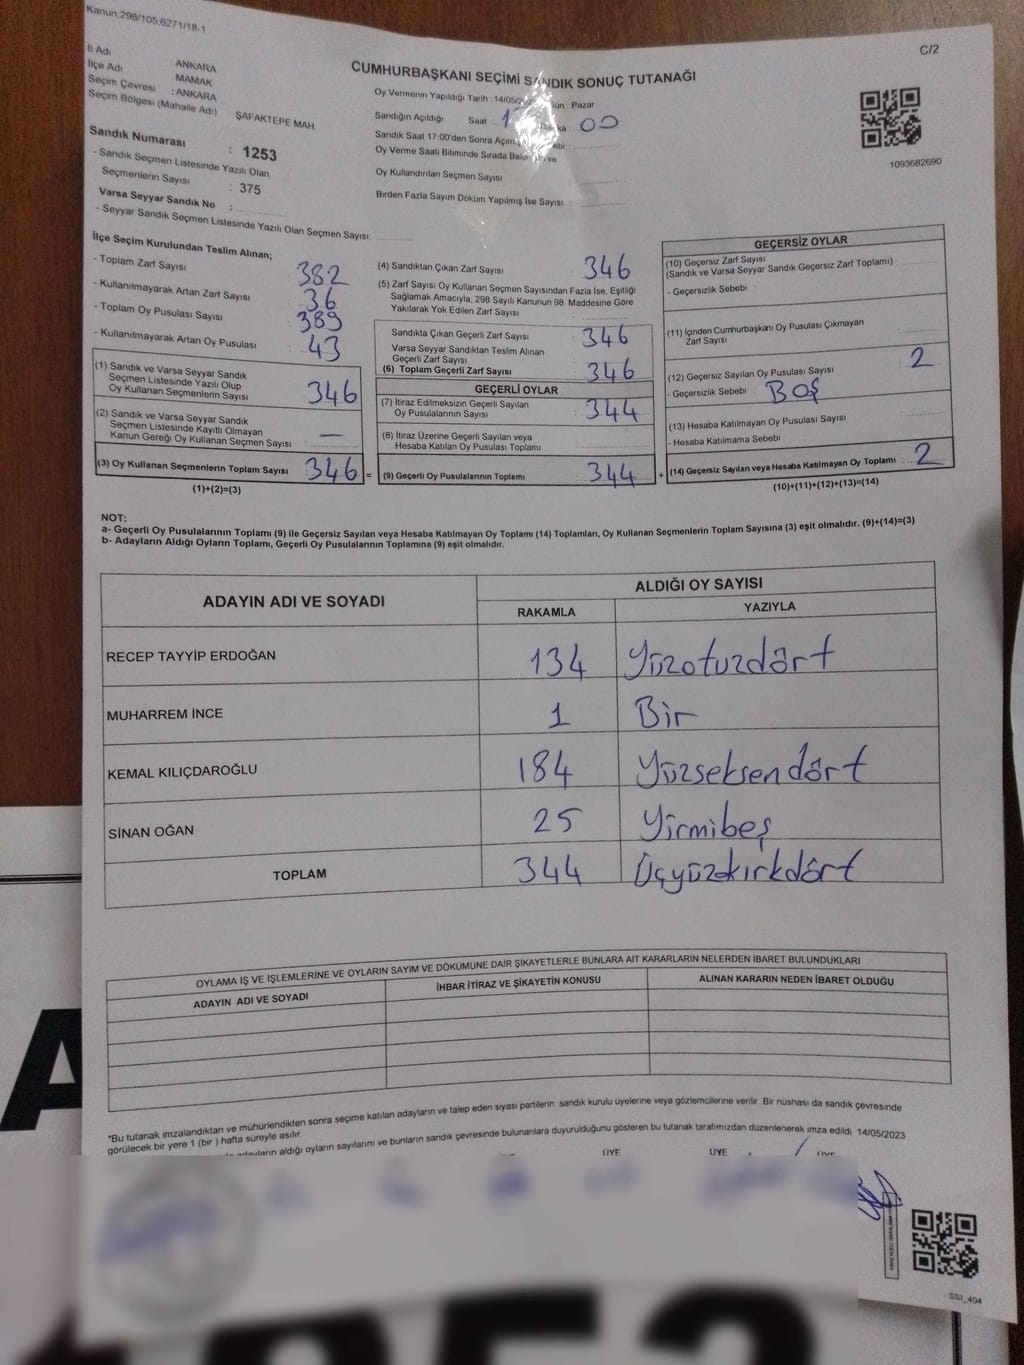 Kanun:298/105;6271/18-1
C/2
İl Adı : ANKARA
İlçe Adı : MAMAK
Seçim Çevresi : ANKARA
Seçim Bölgesi (Mahalle Adı) ŞAFAKTEPE MAH.
Sandık Numarası : 1253
- Sandık Seçmen Listesinde Yazılı Olan
Seçmenlerin Sayısı : 375
Varsa Seyyar Sandık No :
- Seyyar Sandık Seçmen Listesinde Yazılı Olan Seçmen Sayısı:
CUMHURBAŞKANI SEÇİMİ SANDIK SONUÇ TUTANAĞI
Oy Vermenin Yapıldığı Tarih :14/05/ Pazar
Sandığın Açıldığı Saat : 00
Sandık Saat 17:00'den Sonra
Oy Verme Saati Bitiminde Sırada ve
Oy Kullandırılan Seçmen Sayısı
Birden Fazla Sayım Döküm Yapılmış İse Sayısı :
1093682690
İlçe Seçim Kurulundan Teslim Alınan;
- Toplam Zarf Sayısı : 382
- Kullanılmayarak Artan Zarf Sayısı : 36
- Toplam Oy Pusulası Sayısı : 389
- Kullanılmayarak Artan Oy Pusulası : 43
(1) Sandık ve Varsa Seyyar Sandık
Seçmen Listesinde Yazılı Olup
Oy Kullanan Seçmenlerin Sayısı : 346
(2) Sandık ve Varsa Seyyar Sandık
Seçmen Listesinde Kayıtlı Olmayan
Kanun Gereği Oy Kullanan Seçmen Sayısı : —
(3) Oy Kullanan Seçmenlerin Toplam Sayısı : 346 =
(1)+(2)=(3)
(4) Sandıktan Çıkan Zarf Sayısı : 346
(5) Zarf Sayısı Oy Kullanan Seçmen Sayısından Fazla İse, Eşitliği
Sağlamak Amacıyla; 298 Sayılı Kanunun 98. Maddesine Göre
Yakılarak Yok Edilen Zarf Sayısı :
Sandıkta Çıkan Geçerli Zarf Sayısı : 346
Varsa Seyyar Sandıktan Teslim Alınan
Geçerli Zarf Sayısı
(6) Toplam Geçerli Zarf Sayısı : 346
GEÇERLİ OYLAR
(7) İtiraz Edilmeksizin Geçerli Sayılan
Oy Pusulalarının Sayısı : 344
(8) İtiraz Üzerine Geçerli Sayılan veya
Hesaba Katılan Oy Pusulası Toplamı :
(9) Geçerli Oy Pusulalarının Toplamı : 344 +
GEÇERSİZ OYLAR
(10) Geçersiz Zarf Sayısı
(Sandık ve Varsa Seyyar Sandık Geçersiz Zarf Toplamı) :
- Geçersizlik Sebebi :
(11) İçinden Cumhurbaşkanı Oy Pusulası Çıkmayan
Zarf Sayısı :
(12) Geçersiz Sayılan Oy Pusulası Sayısı : 2
- Geçersizlik Sebebi : BOŞ
(13) Hesaba Katılmayan Oy Pusulası Sayısı :
- Hesaba Katılmama Sebebi :
(14) Geçersiz Sayılan veya Hesaba Katılmayan Oy Toplamı : 2
(10)+(11)+(12)+(13)=(14)
NOT:
a- Geçerli Oy Pusulalarının Toplamı (9) ile Geçersiz Sayılan veya Hesaba Katılmayan Oy Toplamı (14) Toplamları, Oy Kullanan Seçmenlerin Toplam Sayısına (3) eşit olmalıdır. (9)+(14)=(3)
b- Adayların Aldığı Oyların Toplamı, Geçerli Oy Pusulalarının Toplamına (9) eşit olmalıdır.
ADAYIN ADI VE SOYADI ALDIĞI OY SAYISI
RAKAMLA YAZIYLA
RECEP TAYYİP ERDOĞAN 134 Yüzotuzdört
MUHARREM İNCE 1 Bir
KEMAL KILIÇDAROĞLU 184 Yüzseksendört
SİNAN OĞAN 25 Yirmibeş
TOPLAM 344 Üçyüzkırkdört
OYLAMA İŞ VE İŞLEMLERİNE VE OYLARIN SAYIM VE DÖKÜMÜNE DAİR ŞİKAYETLERLE BUNLARA AİT KARARLARIN NELERDEN İBARET BULUNDUKLARI
ADAYIN ADI VE SOYADI İHBAR İTİRAZ VE ŞİKAYETİN KONUSU ALINAN KARARIN NEDEN İBARET OLDUĞU
"Bu tutanak imzalandıktan ve mühürlendikten sonra seçime katılan adayların ve talep eden siyasi partilerin sandık kurulu üyelerine veya gözlemcilerine verilir. Bir nüshası da sandık çevresinde
görülecek bir yere 1 (bir ) hafta süreyle asılır.
adayların aldığı oyların sayılarını ve bunların sandık çevresinde bulunanlara duyurulduğunu gösteren bu tutanak tarafımızdan düzenlenerek imza edildi. 14/05/2023
ÜYE ÜYE ÜYE
SSI_404